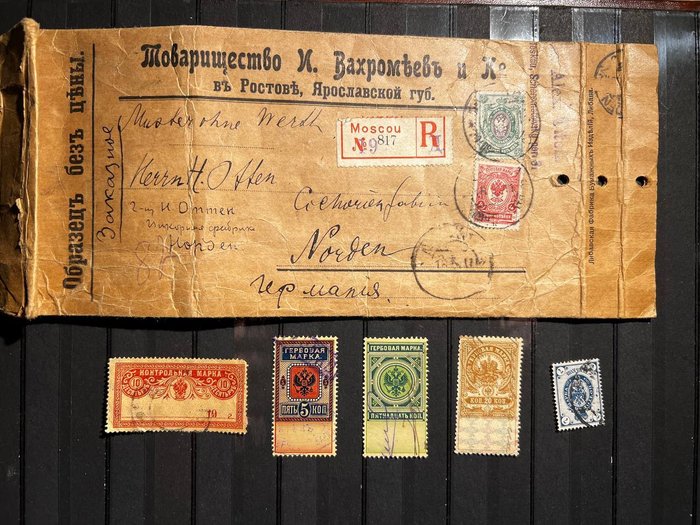 Товарищество И. Вахромѣевъ и Ко
въ Ростовѣ, Ярославской губ.
Образецъ безъ цѣны.
Заказное
Muster ohne Werth
Moscou
R
№ 9817
Herrn H. Otten
г-ну Н Оттен
Cichorienfabrik
Цикорная фабрика
Norden
Норден
Германія
Либавская Фабрика Бумажныхъ Издѣлій, Либава.
КОНТРОЛЬНАЯ МАРКА
10
10
19 г.
ГЕРБОВАЯ
МАРКА
5
ПЯТЬ КОП.
ГЕРБОВАЯ МАРКА.
ПЯТНАДЦАТЬ КОП.
КОП. 20 КОП.